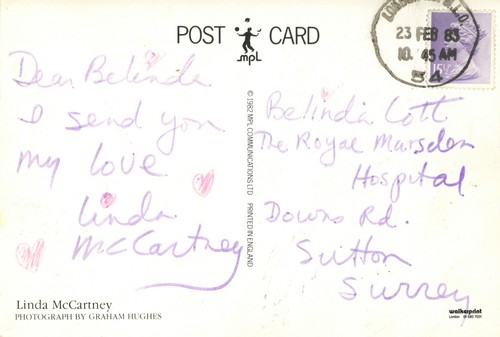 POST CARD
mpl
23 FEB 83
10. 45 AM
54
15½
Dear Belinda
I send you
my love
Linda
McCartney
© 1982 MPL COMMUNICATIONS LTD PRINTED IN ENGLAND
Belinda Cott
The Royal Marsden
Hospital
Downs Rd.
Sutton
Surrey
Linda McCartney
PHOTOGRAPH BY GRAHAM HUGHES
walkerprint
London